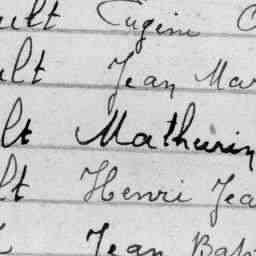 ult Eugène
ult Jean Mar
lt Mathurin
lt Henri Jea
t Jean Bap